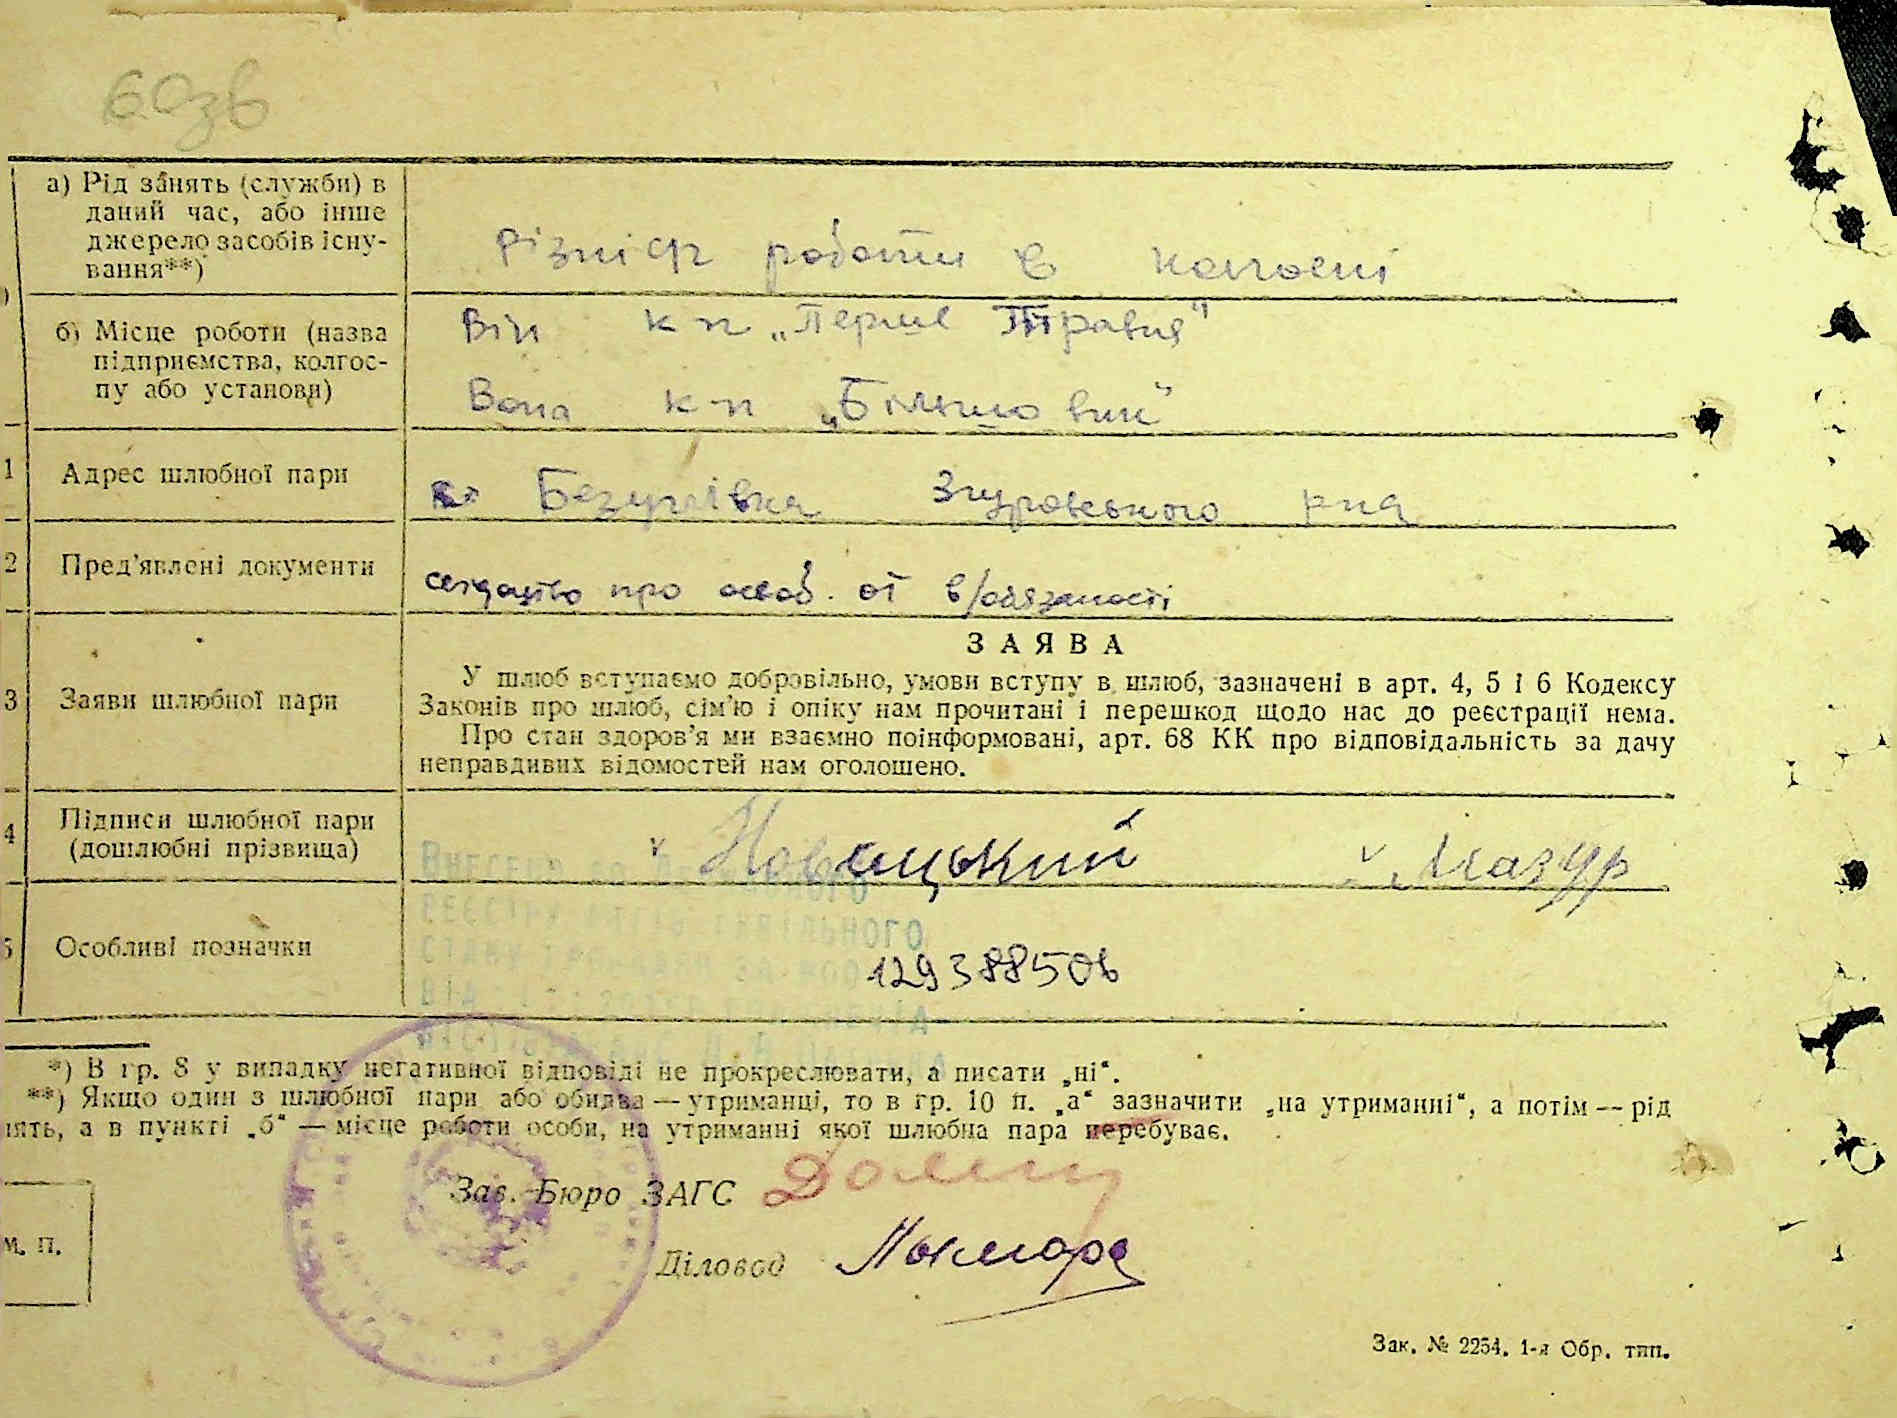 603в
а) Рід занять (служби) в
даний час, або інше
джерело засобів існу-
вання**)
різніх роботи в колгоспі
б) Місце роботи (назва
підприємства, колгос-
пу або установи)
Він к-п „Перше Травня"
Вона к-п „Більшовик"
1 Адрес шлюбної пари
Безуглівка Згурівського р-на
2 Пред'явлені документи
свідоцтво про освоб. от в/обязаності
ЗАЯВА
3 Заяви шлюбної пари
У шлюб вступаємо добровільно, умови вступу в шлюб, зазначені в арт. 4, 5 і 6 Кодексу
Законів про шлюб, сім'ю і опіку нам прочитані і перешкод щодо нас до реєстрації нема.
Про стан здоров'я ми взаємно поінформовані, арт. 68 КК про відповідальність за дачу
неправдивих відомостей нам оголошено.
4 Підписи шлюбної пари
(дошлюбні прізвища)
v Новацький v Мазур
Внесено до Державного
реєстру актів цивільного
стану громадян за
5 Особливі позначки
129388506
*) В гр. 8 у випадку негативної відповіді не прокреслювати, а писати „ні“.
**) Якщо один з шлюбної пари або обидва — утриманці, то в гр. 10 п. „а“ зазначити „на утриманні“, а потім — рід
нять, а в пункті „б“ — місце роботи особи, на утриманні якої шлюбна пара перебуває.
Зав. Бюро ЗАГС
М. П.
Діловод
Зак. № 2254. 1-я Обр. тип.